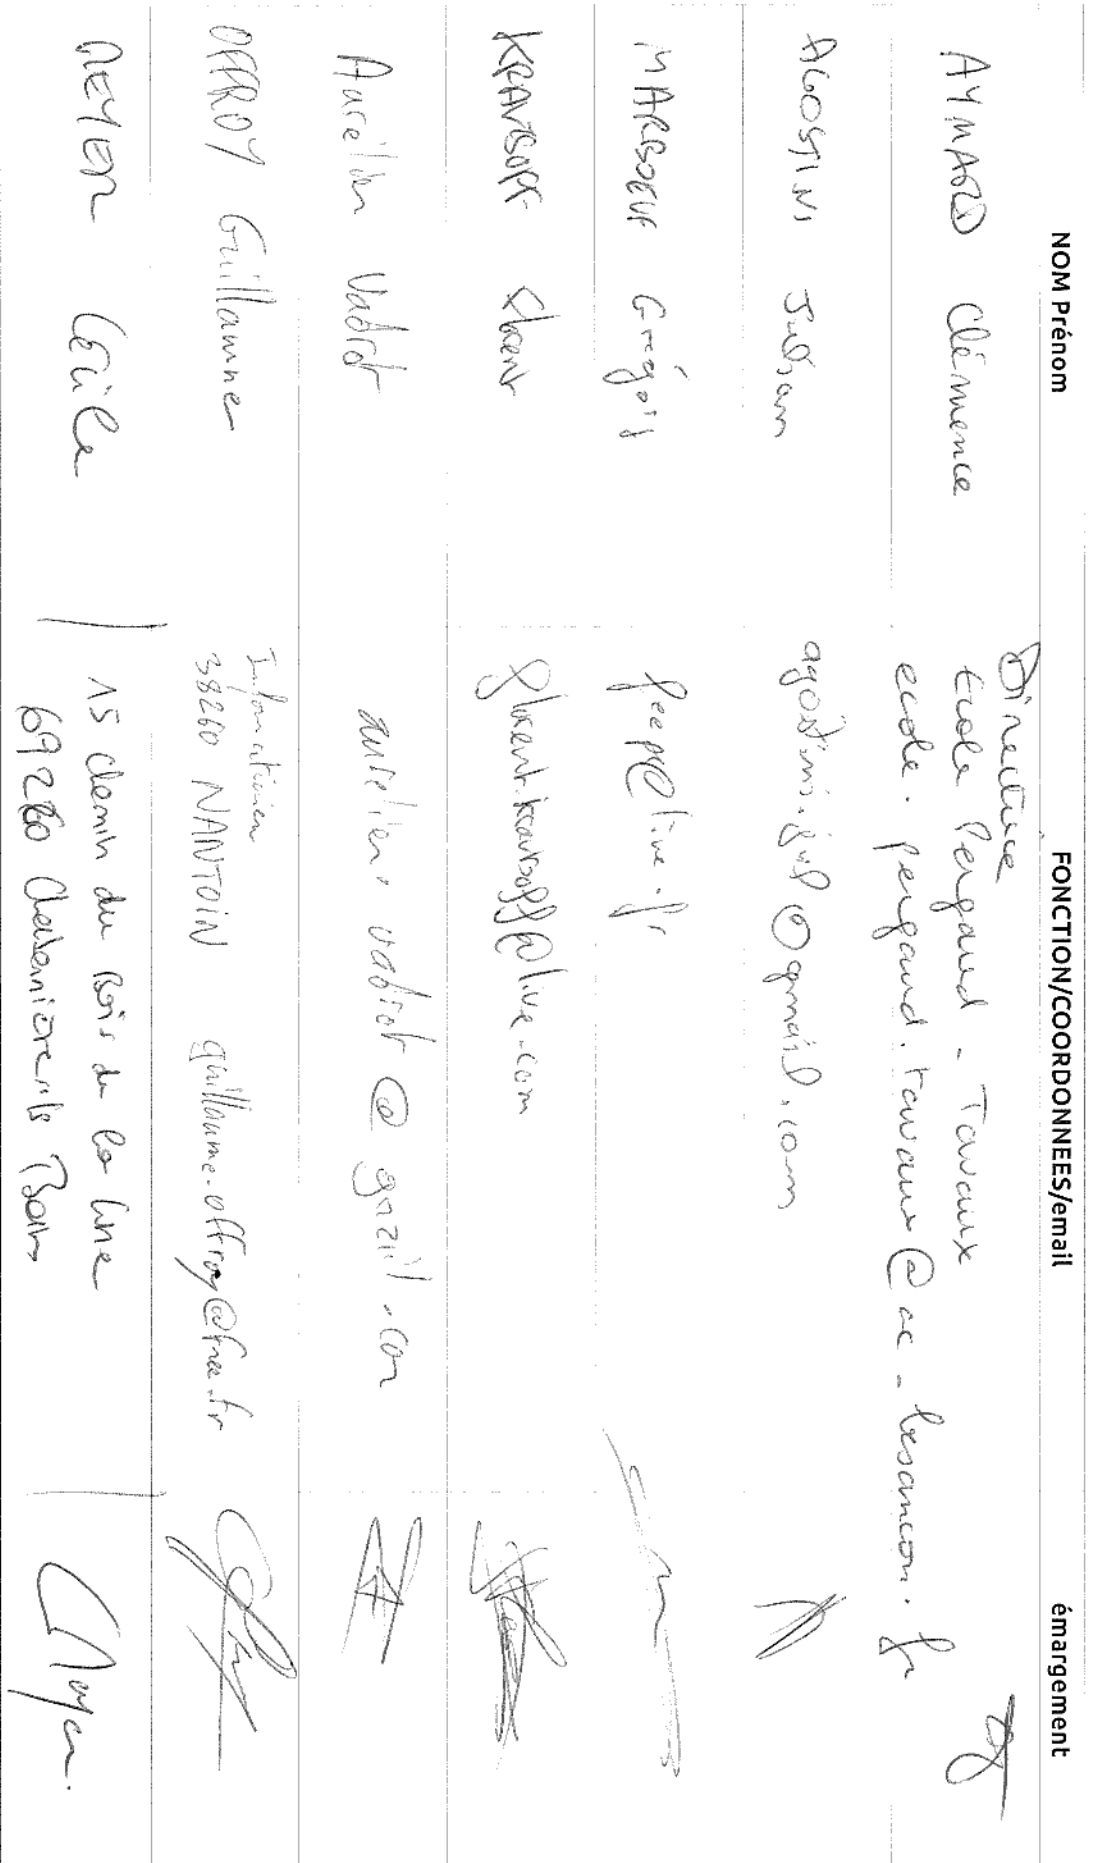 NOM Prénom FONCTION/COORDONNEES/email émargement
AYMARD Clémence Directrice
Ecole Pergaud - Tavaux
ecole.pergaud.tavaux@ac-besancon.fr
AGOSTINI Juliam agostini.jul@gmail.com
MARBOEUF Grégoir @live.fr
KRAVTSOFF Florent florent.kravtsoff@live.com
Aurélien Vadrot aurelien.vadrot@gmail.com
OFFROY Guillaume Informaticien
38260 NANTOIN guillaume.offroy@free.fr
MEYER Cécile 15 chemin du Bois de la Lune
69260 Charbonnières les Bains
Meyer.